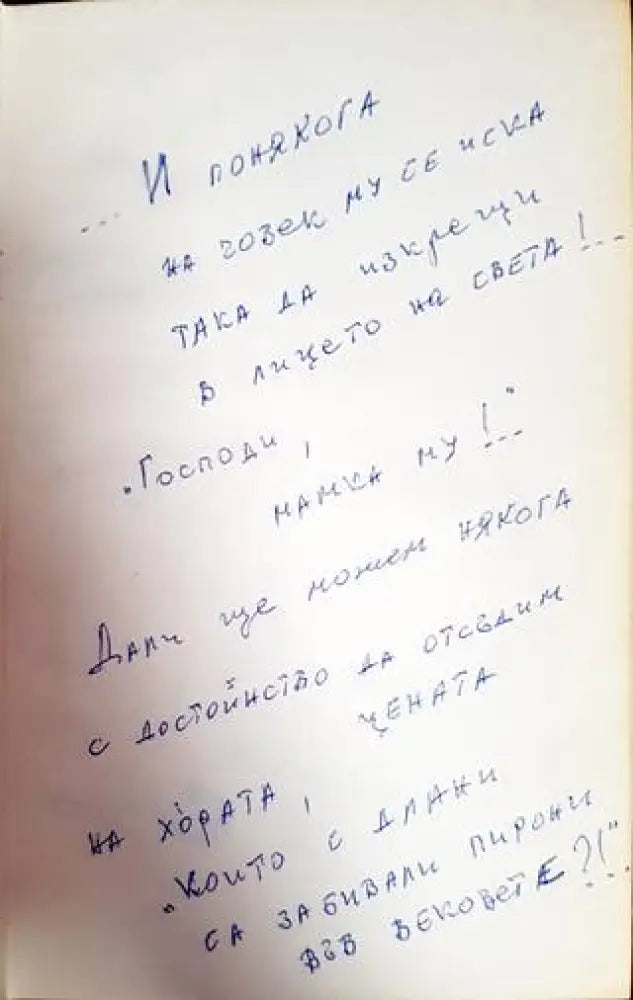 ... И понякога
на човек му се иска
така да изкрещи
в лицето на света!...
"Господи,
мамка му!..."
Дали ще можем някога
с достойнство да отсъдим
цената
на хòрата,
"които с длани
са забивали пирони
във вековете?!..."